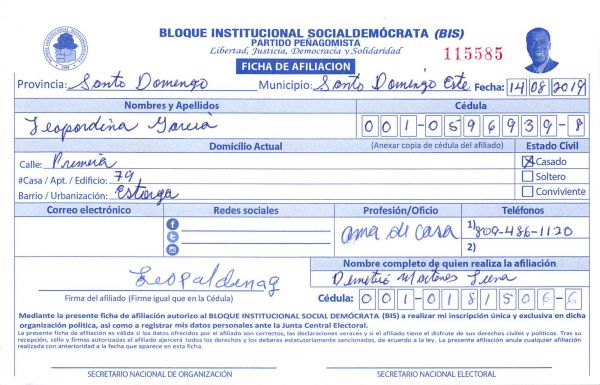 BLOQUE INSTITUCIONAL SOCIALDEMÓCRATA (BIS)
PARTIDO PEÑAGOMISTA
Libertad, Justicia, Democracia y Solidaridad
115585
FICHA DE AFILIACION
Provincia: Santo Domingo Municipio: Santo Domingo Este Fecha: 14 08 2019
Nombres y Apellidos Cédula
Leopordina Garcia 001-0596939-8
Domicilio Actual (Anexar copia de cédula del afiliado) Estado Civil
Calle: Primera Casado
#Casa / Apt. / Edificio: 79 Soltero
Barrio / Urbanización: Estorga Conviviente
Correo electrónico Redes sociales Profesión/Oficio Teléfonos
ama de casa 1) 809-486-1120
2)
Nombre completo de quien realiza la afiliación
Leopaldinag Demetrio
Firma del afiliado (Firme igual que en la Cédula) Cédula: 001-0181506-6
Mediante la presente ficha de afiliación autorizo al BLOQUE INSTITUCIONAL SOCIAL DEMÓCRATA (BIS) a realizar mi inscripción única y exclusiva en dicha
organización política, así como a registrar mis datos personales ante la Junta Central Electoral.
La presente ficha de afiliación es válida si los datos ofrecidos por el afiliado son correctos, las declaraciones veraces y si el afiliado tiene el disfrute de sus derechos civiles y políticos. Tras su
recepción, sello y firmas autorizadas el afiliado ejercerá todos los derechos y los deberes estatutariamente sancionados, de acuerdo a la ley. La presente afiliación anula cualquier afiliación
realizada con anterioridad a la fecha que aparece en esta ficha.
SECRETARIO NACIONAL DE ORGANIZACIÓN SECRETARIO NACIONAL ELECTORAL